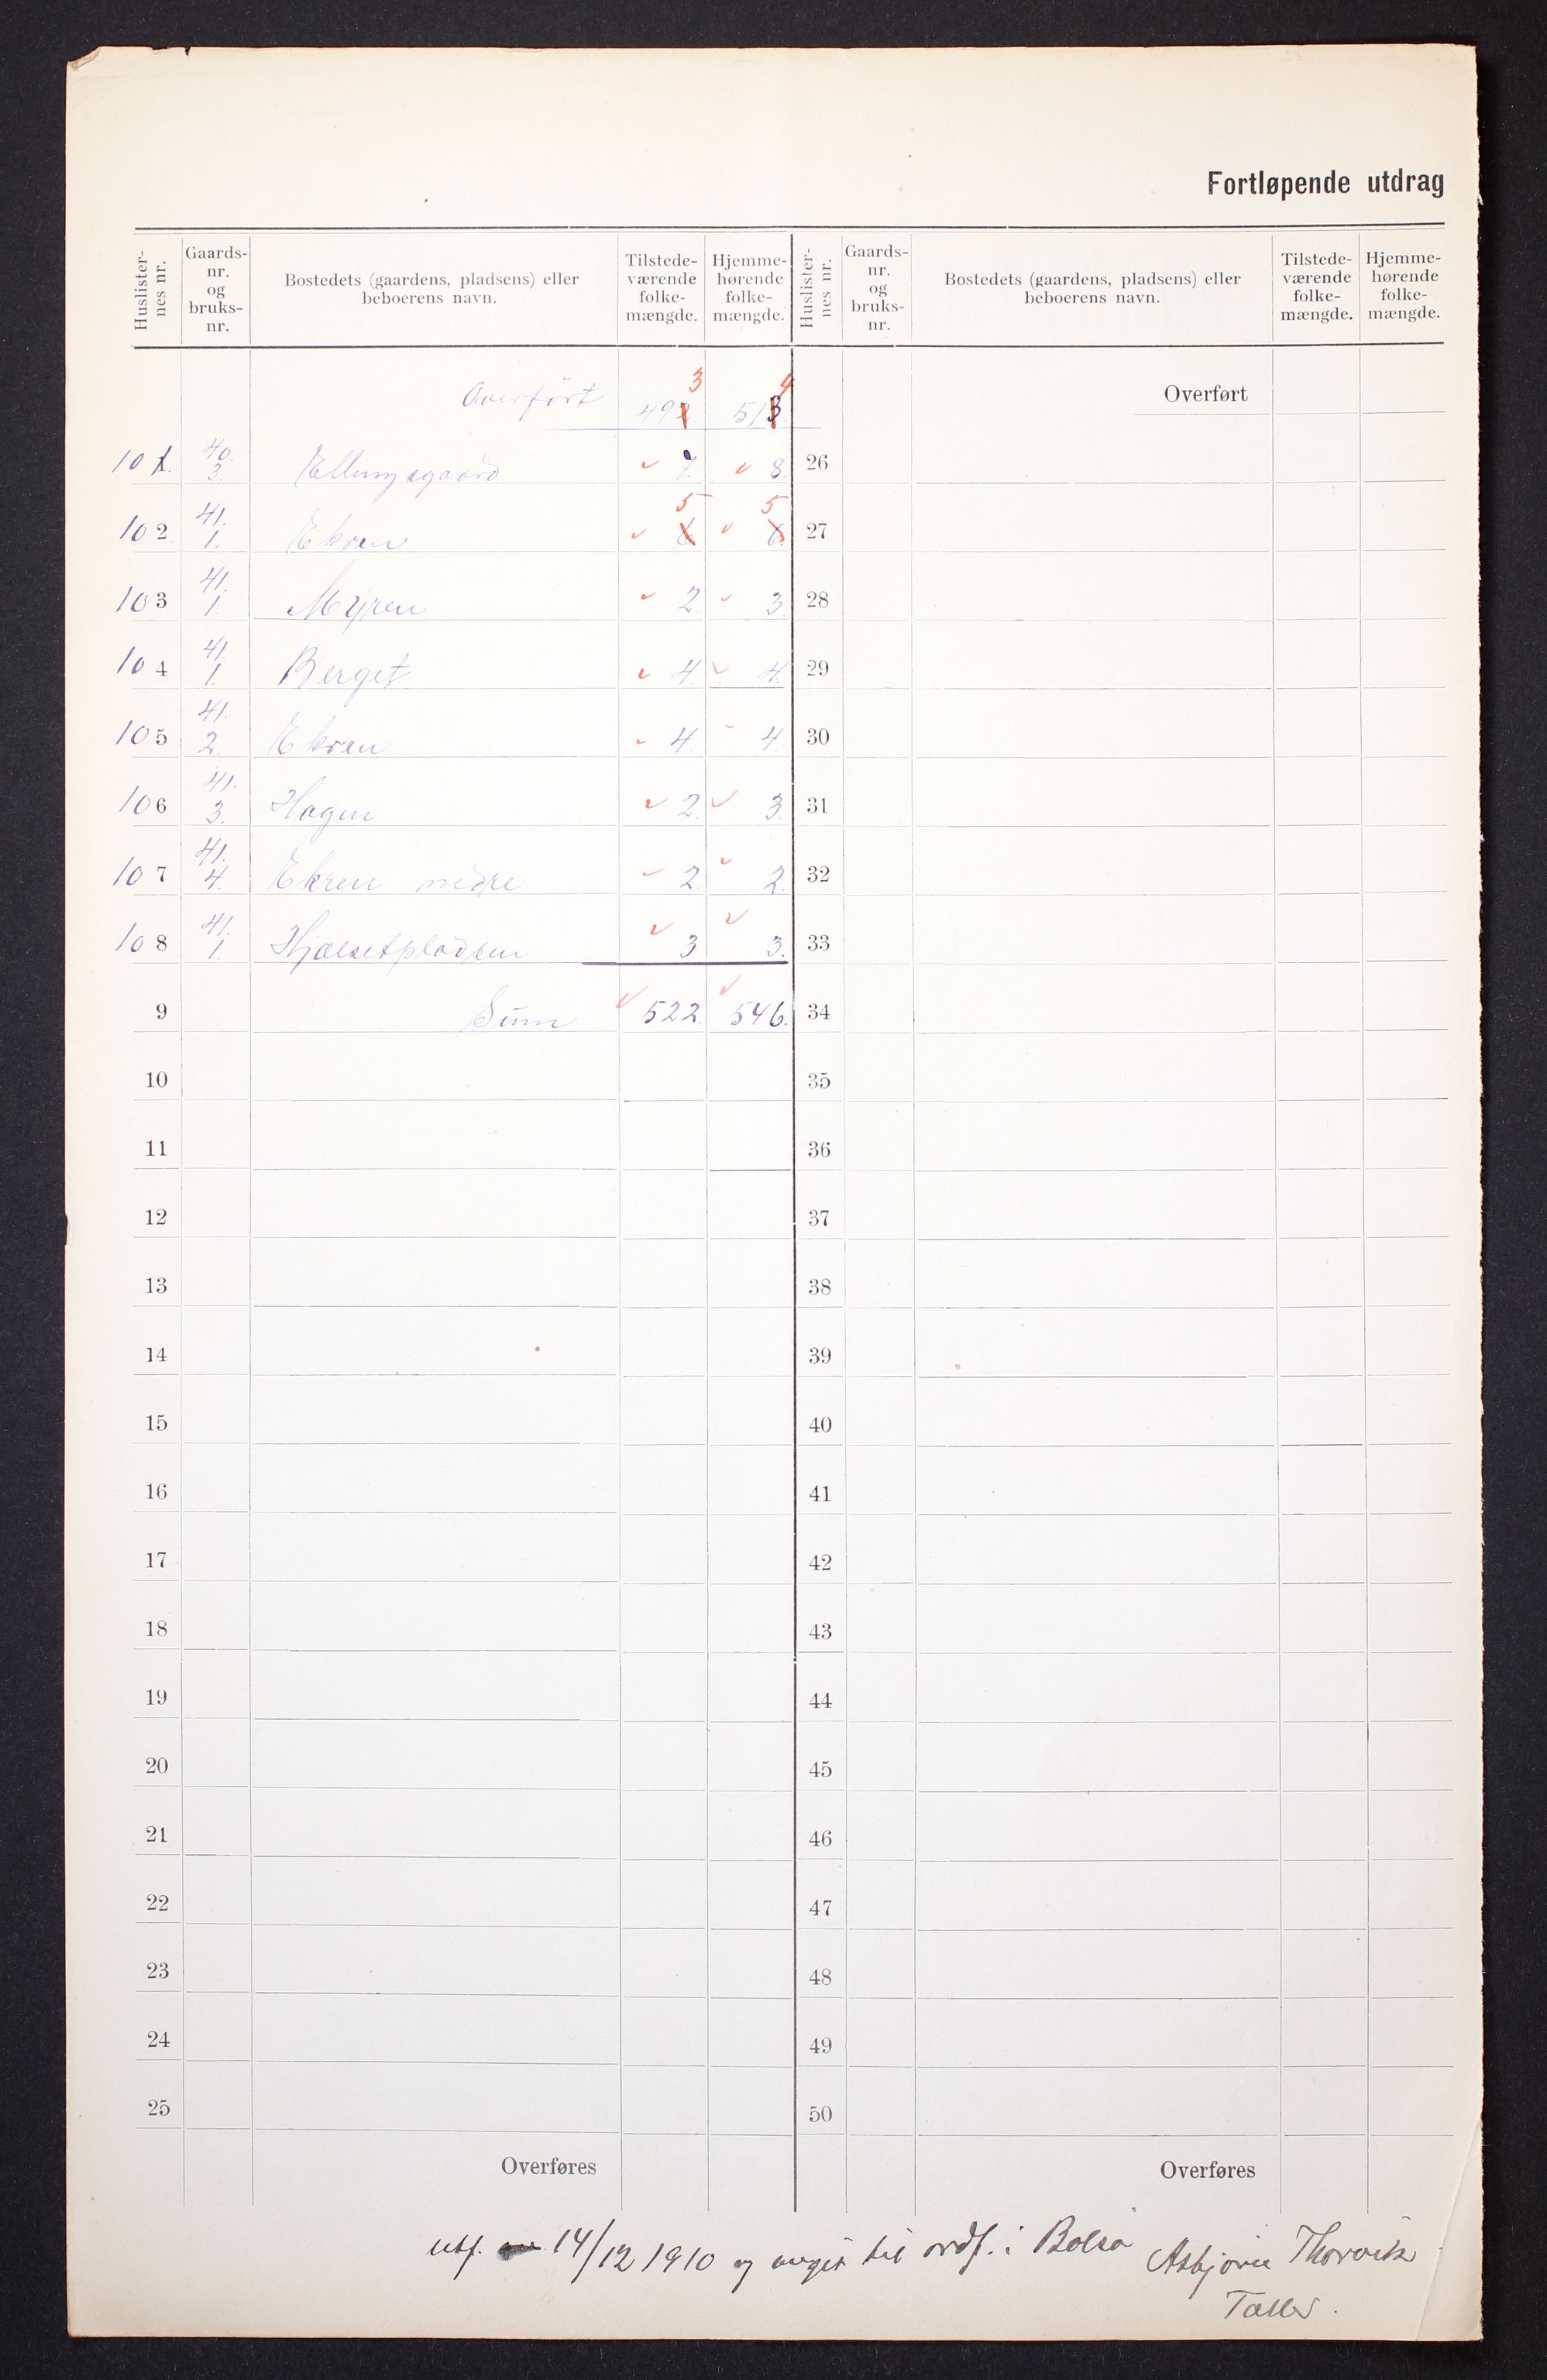 Fortløpende utdrag
Huslister-nes nr. Gaards-nr. og bruks-nr. Bostedets (gaardens, pladsens) eller beboerens navn. Tilstede-værende folke-mængde. Hjemme-hørende folke-mængde. Huslister-nes nr. Gaards-nr. og bruks-nr. Bostedets (gaardens, pladsens) eller beboerens navn. Tilstede-værende folke-mængde. Hjemme-hørende folke-mængde.
3 4
Overført 492 513 Overført
101. 40. 3. Ellingsgaard 7. 8. 26
5 5
102. 41. 1. Ekren 6 6. 27
103 41. 1. Myren 2. 3. 28
104 41. 1. Berget 4. 4. 29
105 41. 2. Ekren 4. 4. 30
106 41. 3. Hagen 2. 3. 31
107 41. 4. Ekren nedre 2. 2. 32
108 41. 1. Hjælsetpladsen 3 3. 33
9 Sum 522. 546. 34
10 35
11 36
12 37
13 38
14 39
15 40
16 41
17 42
18 43
19 44
20 45
21 46
22 47
23 48
24 49
25 50
Overføres Overføres
utf. 14/12 1910 og til ordf. i Bolsø Asbjørn Thorvik
Tæller.